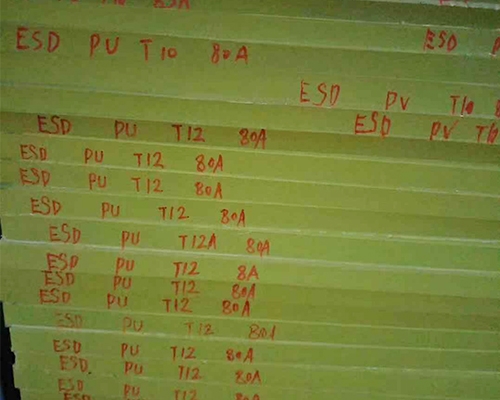 T10 80A
ESD PU T10 80A ESD
ESD PV T10
ESD PU T12 80A ESD PV T10
ESD PU T12 80A
ESD PU T12 80A
ESD PU T12 80A
ESD PU T12A 80A
ESD PU T12 8A
ESD PU T12 80A
ESD PU T12 80A
ESD PU T12 801
ESD PU T12 80A
ESD PU T12 80A
ESD PU T12 80A
ESD